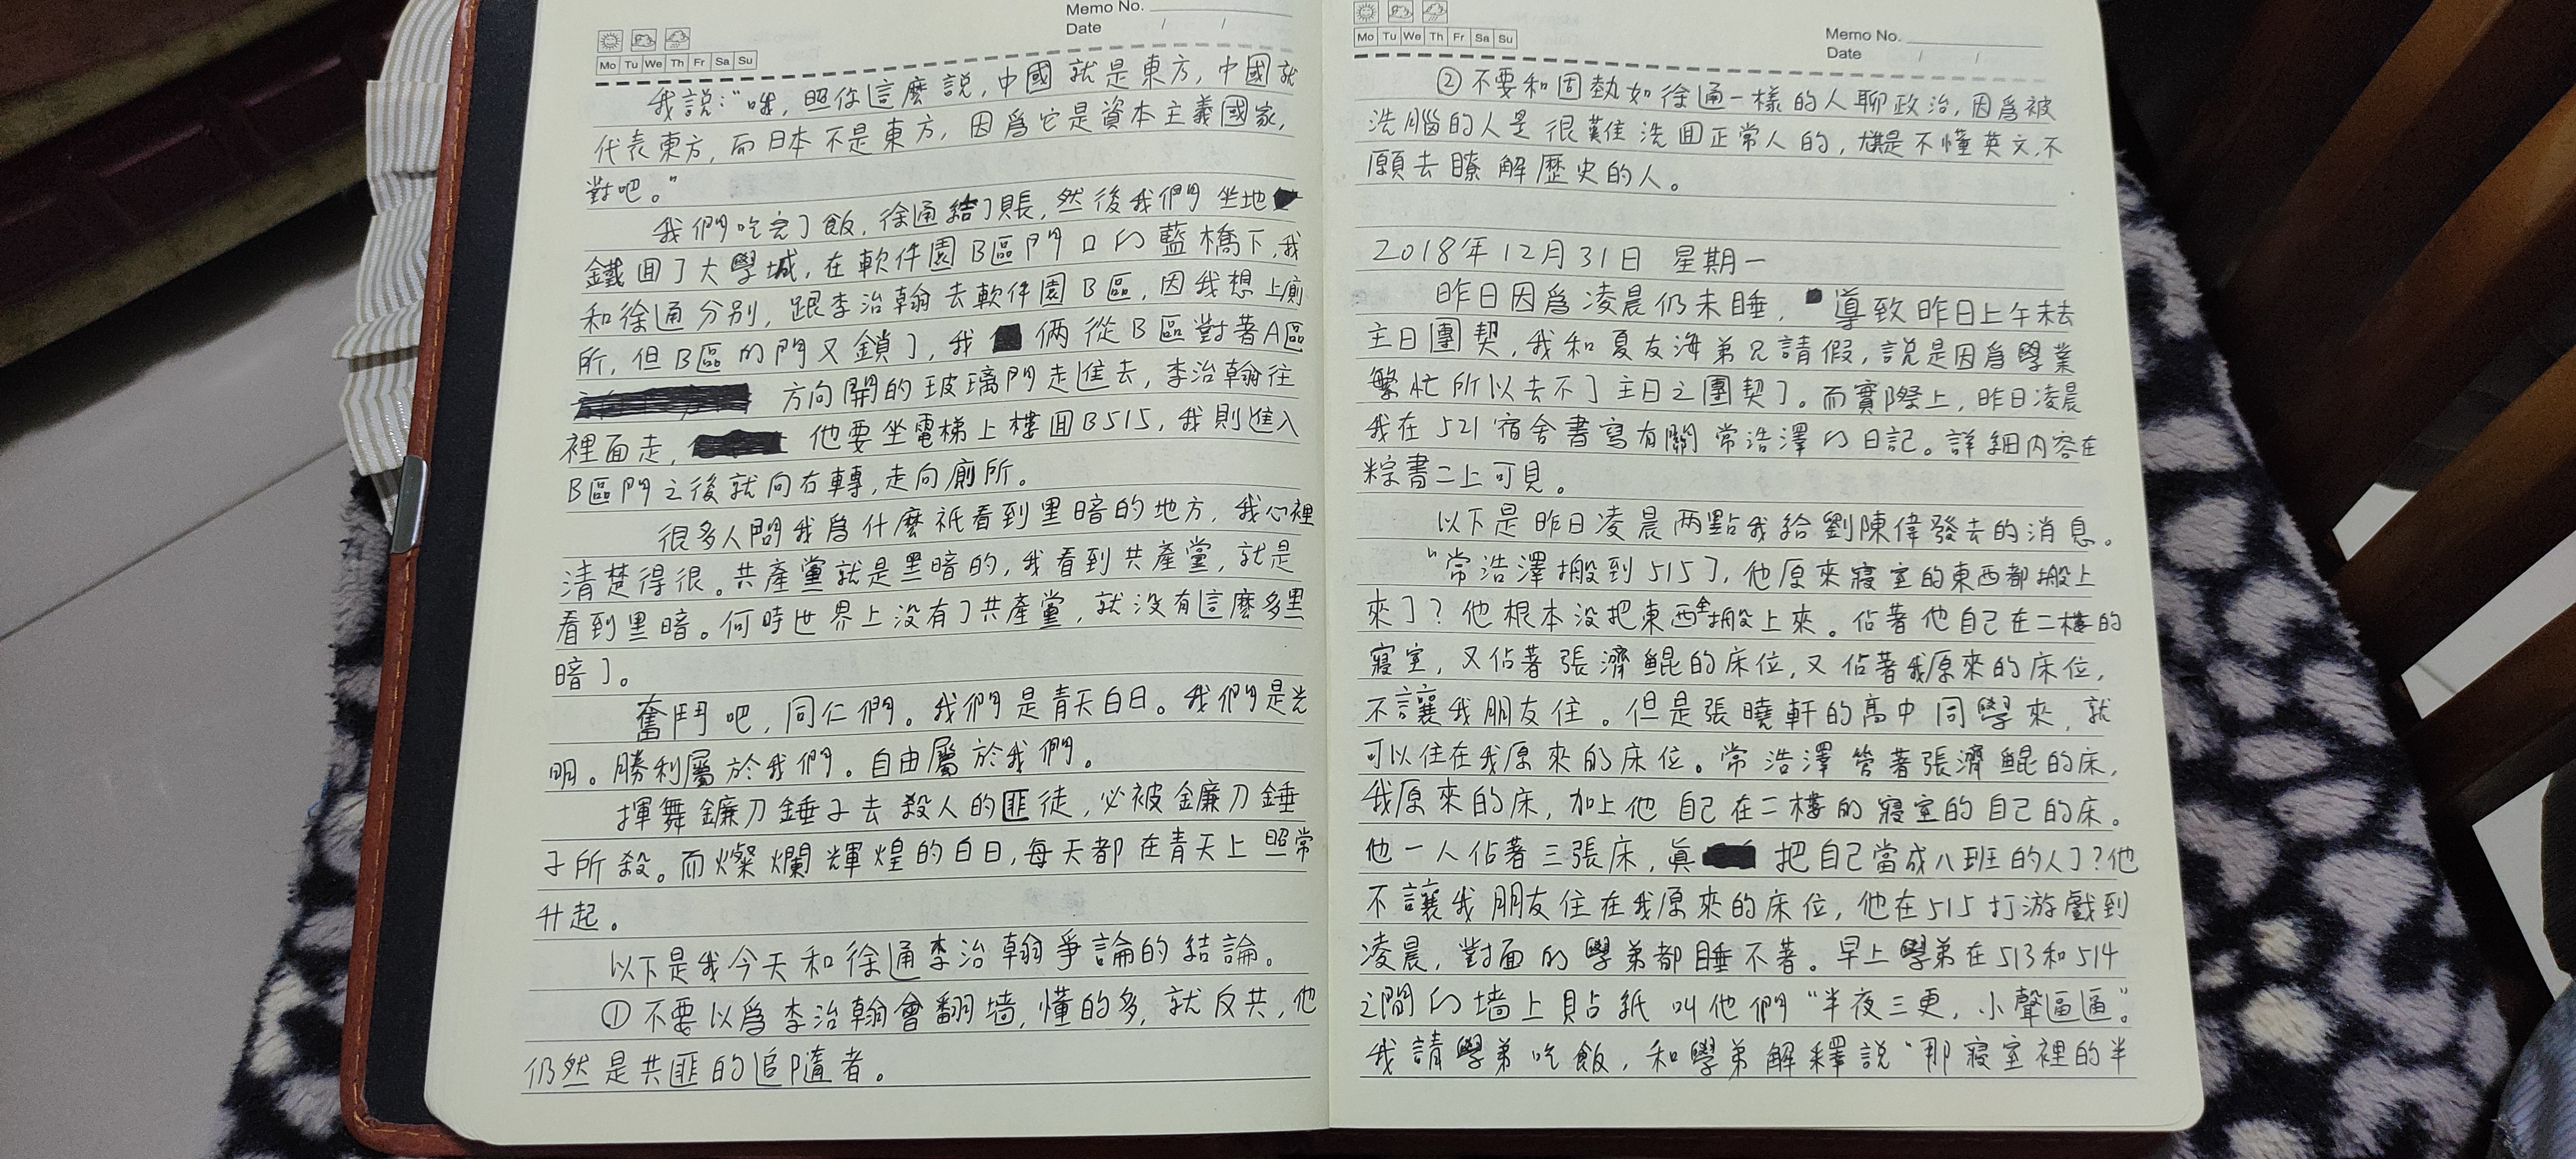 Memo No.
Date / /
Mo Tu We Th Fr Sa Su
我說："哦，照你這麼說，中國就是東方，中國就
代表東方，而日本不是東方，因爲它是資本主義國家，
對吧。"
我們吃完了飯，徐通結了賬，然後我們坐地
鐵回了大學城，在軟件園B區門口的藍橋下，我
和徐通分別，跟李治翰去軟件園B區，因我想上廁
所，但B區的門又鎖了，我倆從B區對著A區
方向開的玻璃門走進去，李治翰往
裡面走，他要坐電梯上樓回B515，我則進入
B區門之後就向右轉，走向廁所。
很多人問我爲什麼祇看到黑暗的地方，我心裡
清楚得很。共產黨就是黑暗的，我看到共產黨，就是
看到黑暗。何時世界上沒有了共產黨，就沒有這麼多黑
暗了。
奮鬥吧，同仁們。我們是青天白日。我們是光
明。勝利屬於我們。自由屬於我們。
揮舞鐮刀錘子去殺人的匪徒，必被鐮刀錘
子所殺。而燦爛輝煌的白日，每天都在青天上照常
升起。
以下是我今天和徐通李治翰爭論的結論。
①不要以爲李治翰會翻墙，懂的多，就反共，他
仍然是共匪的追隨者。
Mo Tu We Th Fr Sa Su
Memo No.
Date / /
②不要和固執如徐通一樣的人聊政治，因爲被
洗腦的人是很難洗回正常人的，尤其是不懂英文，不
願去瞭解歷史的人。
2018年12月31日 星期一
昨日因爲凌晨仍未睡，導致昨日上午未去
主日團契，我和夏友海弟兄請假，說是因爲學業
繁忙所以去不了主日之團契了。而實際上，昨日凌晨
我在521宿舍書寫有關常浩澤的日記。詳細內容在
粽書二上可見。
以下是昨日凌晨两點我給劉陳偉發去的消息。
"常浩澤搬到515了，他原來寢室的東西都搬上
來了？他根本沒把東西全搬上來。佔著他自己在二樓的
寢室，又佔著張濟鯤的床位，又佔著我原來的床位，
不讓我朋友住。但是張曉軒的高中同學來，就
可以住在我原來的床位。常浩澤管著張濟鯤的床，
我原來的床，加上他自己在二樓的寢室的自己的床。
他一人佔著三張床，真把自己當成八班的人了？他
不讓我朋友住在我原來的床位，他在515打游戲到
凌晨，對面的學弟都睡不著。早上學弟在513和514
之間的墙上貼紙叫他們"半夜三更，小聲逼逼"。
我請學弟吃飯，和學弟解釋說"那寢室裡的半